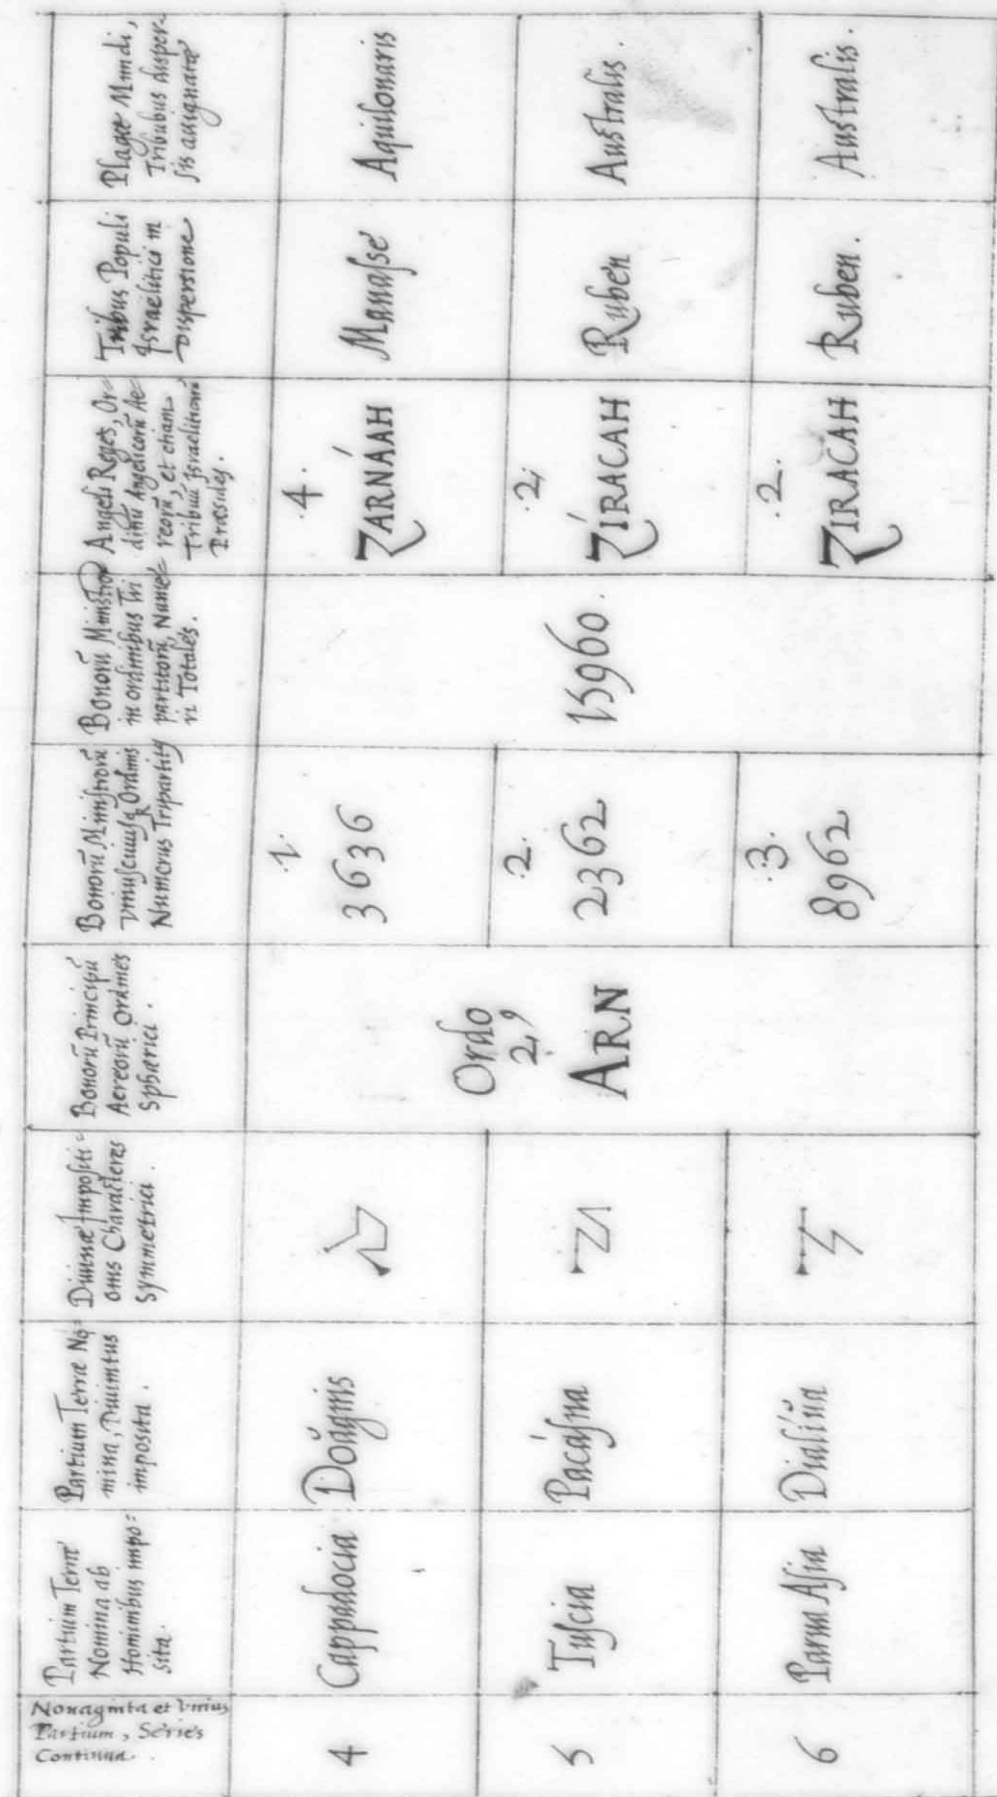 Nonaginta et Vnius
Partium, Series
Continua.
Partium Terræ
Nomina ab
Hominibus impo=
sita.
Partium Terræ No=
mina, Diuinitus
imposita.
Diuinæ Impositi=
onis Characteres
Symmetrici.
Bonorũ Principũ
Aereorũ Ordines
Sphærici.
Bonorũ Ministrorũ
vniuscuiusq Ordinis
Numerus Tripartitꝰ
Bonorũ Ministrorũ
in ordinibus Tri
partitorũ, Nume=
ri Totales.
Angeli Reges, Or=
dinũ Angelicorũ Ae=
reorũ, et etiam
Tribuũ Israeliticarũ
Præsides.
Tribus Populi
Israelitici in
Dispersione
Plagæ Mundi,
Tribubus disper=
sis assignatæ
4
Cappadocia
Doagnis
Ordo
2,
ARN
.1.
3636
15960.
.4.
ZARNÁAH
Manasse
Aquilonaris
5
Tuscia
Pacásna
.2.
2362
.2.
ZÍRACAH
Ruben
Australis.
6
Parua Asia
Dialiua
.3.
8962
.2.
ZIRACAH
Ruben.
Australis.